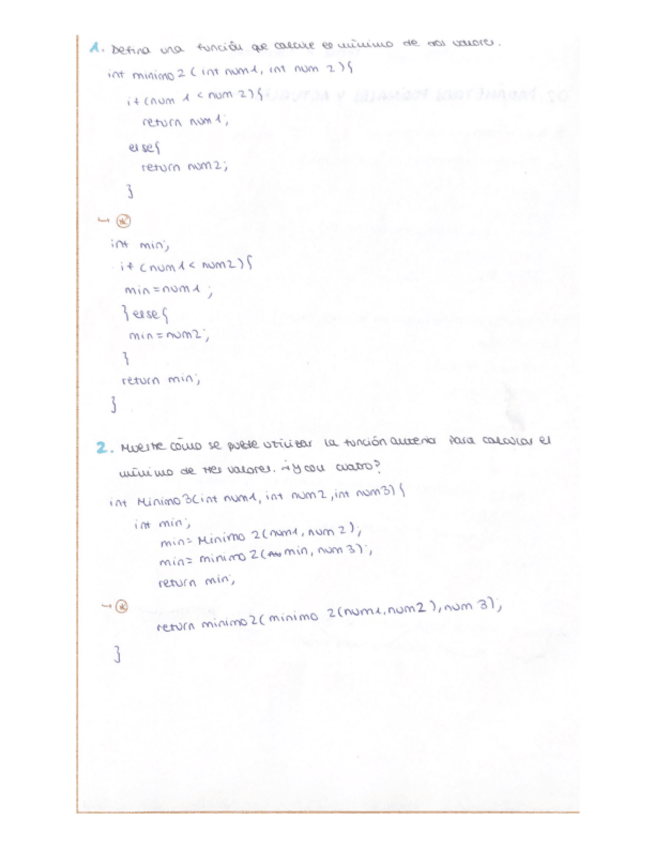 1. Defina una función que calcule el mínimo de dos valores.
int minimo2 (int num1, int num 2){
if(num 1 < num 2){
return num1;
else{
return num2;
}
int min;
if (num1 < num2){
min=num1;
} else{
min=num2;
}
return min;
}
2. Muestre cómo se puede utilizar la función anterior para calcular el
mínimo de tres valores. ¿y con cuatro?
int Minimo3(int num1, int num2, int num3){
int min;
min= Minimo 2(num1, num 2);
min= minimo 2(min, num 3);
return min;
return minimo2( minimo 2(num1,num2), num 3);
}